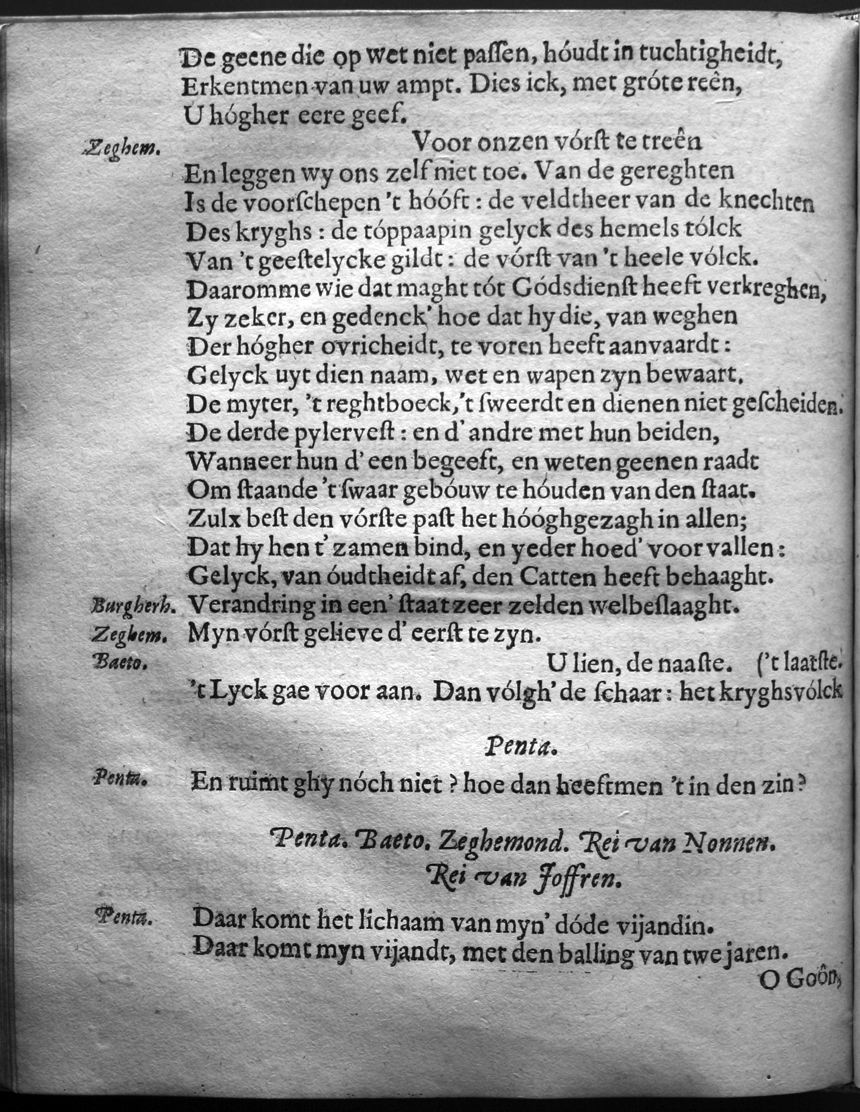 De geene die op wet niet paſſen, hóudt in tuchtigheidt,
Erkentmen van uw ampt. Dies ick, met gróte reên,
U hógher eere geef.
Zeghem. Voor onzen vórſt te treên
En leggen wy ons zelf niet toe. Van de gereghten
Is de voorſchepen 't hóóft : de veldtheer van de knechten
Des kryghs : de tóppaapin gelyck des hemels tólck
Van 't geeſtelycke gildt : de vórſt van 't heele vólck.
Daaromme wie dat maght tót Gódsdienſt heeft verkreghen,
Zy zeker, en gedenck' hoe dat hy die, van weghen
Der hógher ovricheidt, te voren heeft aanvaardt :
Gelyck uyt dien naam, wet en wapen zyn bewaart.
De myter, 't reghtboeck, 't ſweerdt en dienen niet geſcheiden.
De derde pylerveſt : en d' andre met hun beiden,
Wanneer hun d' een begeeft, en weten geenen raadt
Om ſtaande 't ſwaar gebóuw te hóuden van den ſtaat.
Zulx beſt den vórſte paſt het hóóghgezagh in allen;
Dat hy hen t' zamen bind, en yeder hoed' voor vallen :
Gelyck, van óudtheidt af, den Catten heeft behaaght.
Burgherh. Verandring in een' ſtaat zeer zelden welbeſlaaght.
Zeghem. Myn vórſt gelieve d' eerſt te zyn.
Baeto. U lien, de naaſte. ('t laatſte.
't Lyck gae voor aan. Dan vólgh' de ſchaar : het kryghsvólck
Penta.
Penta. En ruimt ghy nóch niet ? hoe dan heeftmen 't in den zin?
Penta. Baeto. Zeghemond. Rei van Nonnen.
Rei van Joffren.
Penta. Daar komt het lichaam van myn' dóde vijandin.
Daar komt myn vijandt, met den balling van twe jaren.
O Goôn,